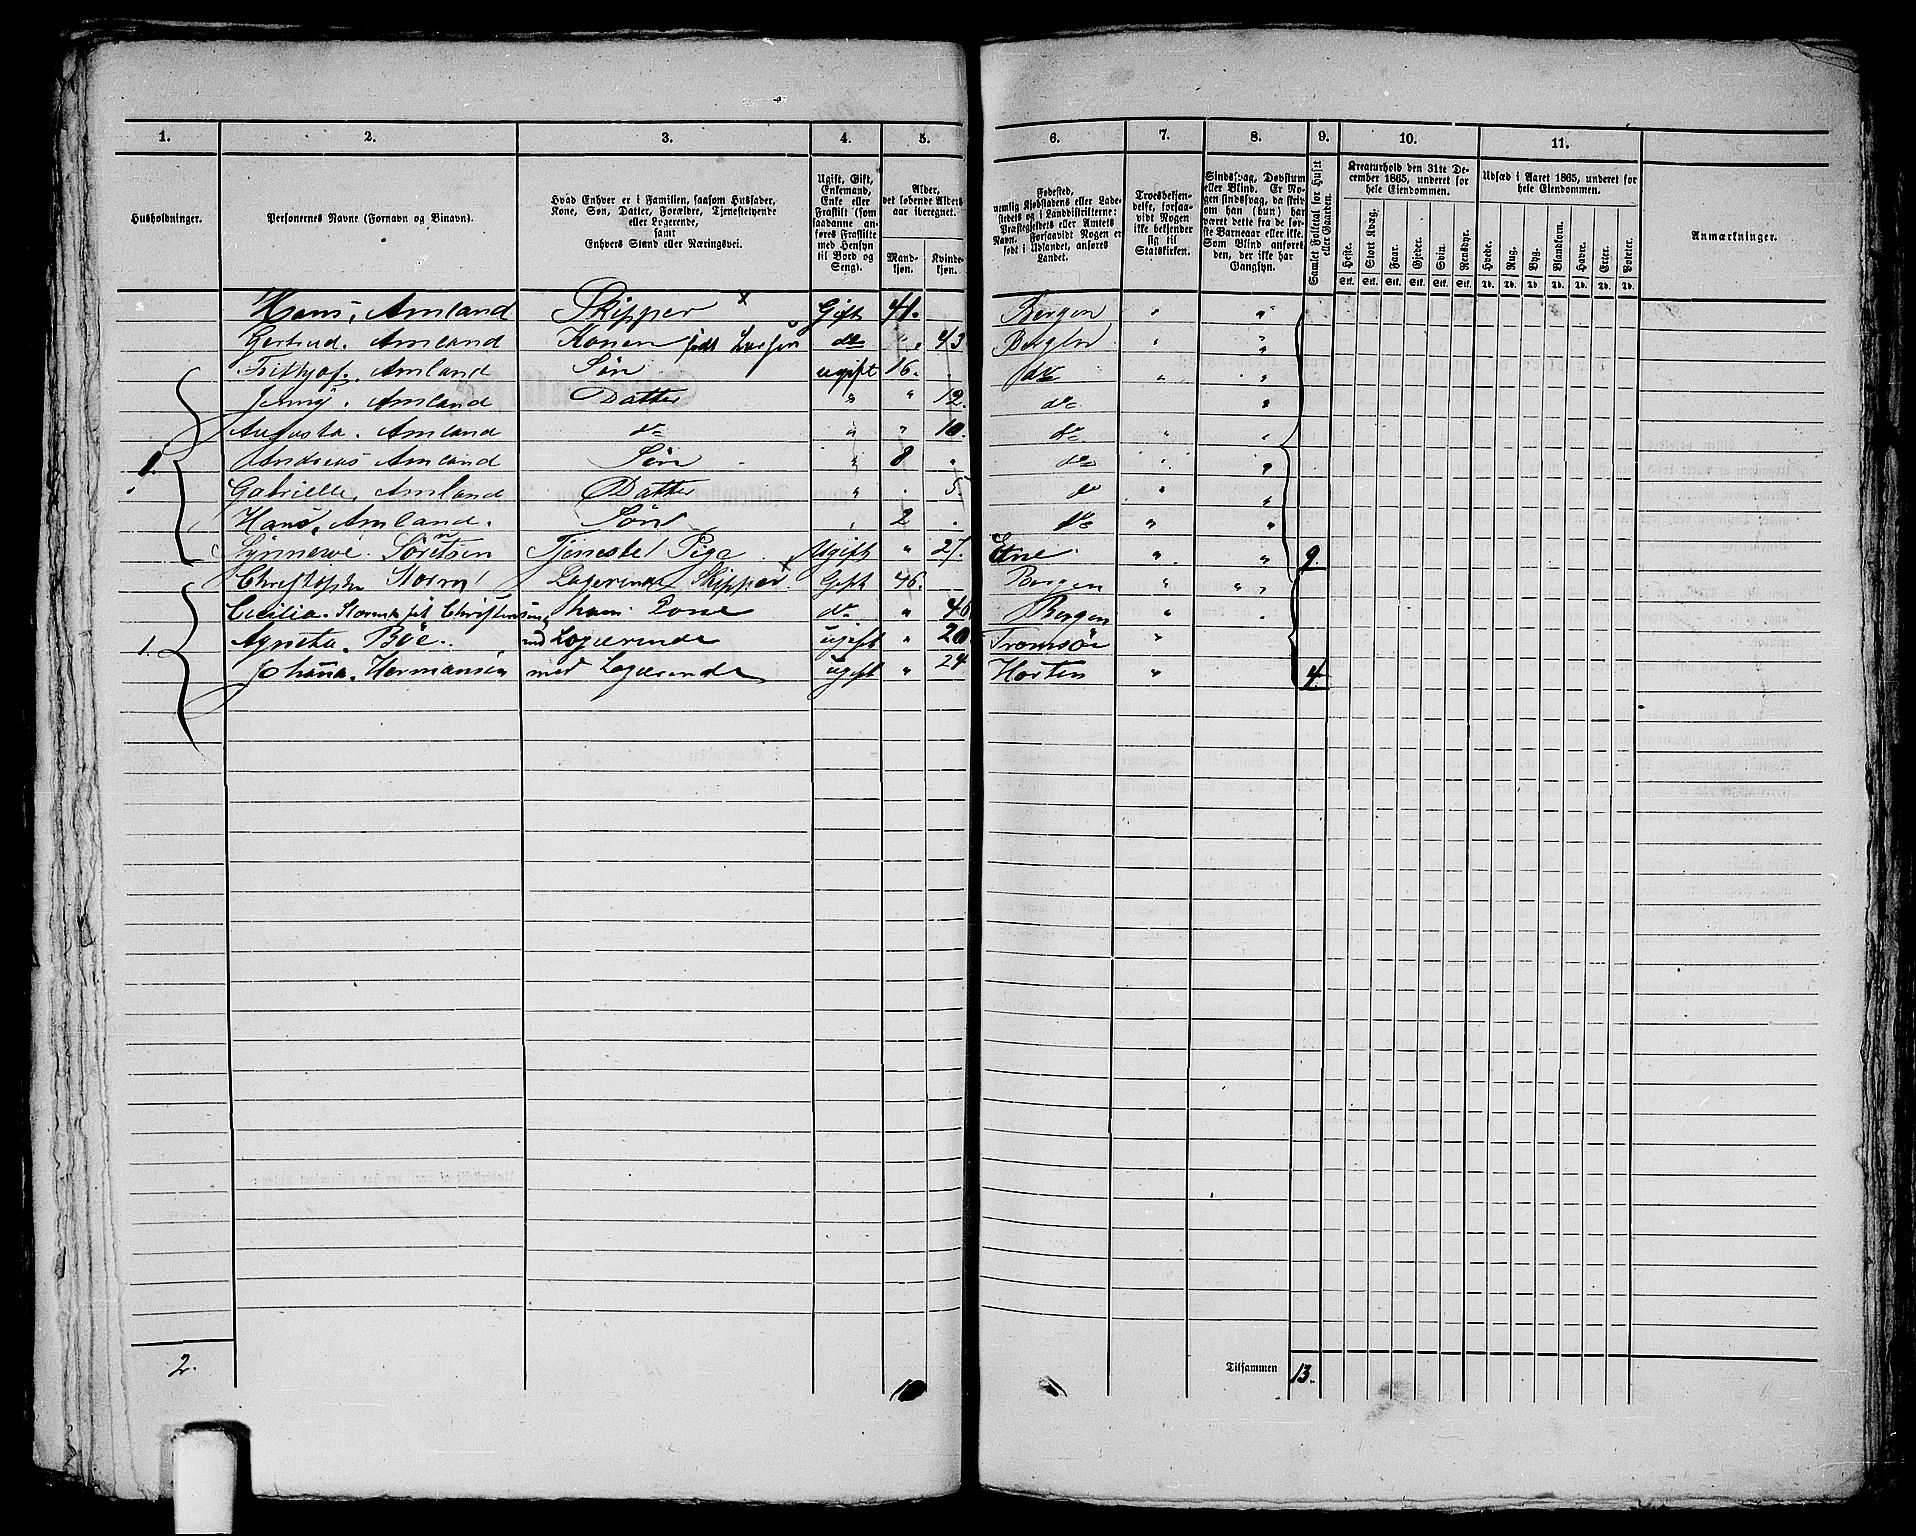 1. 2. 3. 4. 5. 6. 7. 8. 9. 10. 11.
Husholdninger.
Personernes Navne (Fornavn og Binavn).
Hvad Enhver er i Familien, saasom Husfader,
Kone, Søn, Datter, Forældre, Tjenestetyende
eller Logerende,
samt
Enhvers Stand eller Næringsvei.
Ugift, Gift,
Enkemand,
Enke eller
Fraskilt (som
saadanne an-
føres Fraskilte
med Hensyn
til Bord og
Seng).
Alder,
det løbende Alders-
aar iberegnet.
Mand-
kjøn.
Kvinde-
kjøn.
Fødested,
nemlig Kjøbstadens eller Lade-
stedets og i Landdistrikterne:
Præstegjeldets eller Amtets
Navn. Forsaavidt Nogen er
født i Udlandet, anføres
Landet.
Troesbekjen-
delse, forsaa-
vidt Nogen
ikke bekjender
sig til
Statskirken.
Sindssvag, Døvstum
eller Blind. Er No-
gen sindssvag, da skriv
om han (hun) har
været dette fra de før-
ste Barneaar eller ikke.
Som Blind anføres
den, der ikke har
Gangsyn.
Samlet Folketal for Huset
eller Gaarden.
Kreaturhold den 31te De-
cember 1865, underet for
hele Eiendommen.
Heste. Stort Kvæg. Faar. Gjeder. Svin. Rensdyr.
Stk. Stk. Stk. Stk. Stk. Stk.
Udsæd i Aaret 1865, underet for
hele Eiendommen.
Hvede. Rug. Byg. Blandkorn. Havre. Erter. Poteter.
Td. Td. Td. Td. Td. Td. Td.
Anmærkninger.
Hans, Amland Skipper x Gift 41. Bergen " "
Gertrud. Amland Konen født do " 43 Bergen " "
Amland Søn ugift 16. do " "
Jenny. Amland Datter " " 12. do "
Augusta. Amland do " " 10. do " "
1. Andreas Amland Søn " 8 " do " "
Gabrielle, Amland Datter " . 5 do " "
Hans, Amland. Søn " 2 . do " "
Synneve. Sørensen Tjeneste Pige Ugift " 27. Etne. " " 9.
Christopher Storm Logerende Skipper x Gift 46. Bergen " "
Cecilia. Storm Christensen hans Kone do " 46 Bergen " .
1. Agneta. Böe. Logerende ugift " 20 Tromsöe "
Johanna. Hermansen med Logerende ugift " 24 Horten " 4
2. 10 Tilsammen 13.